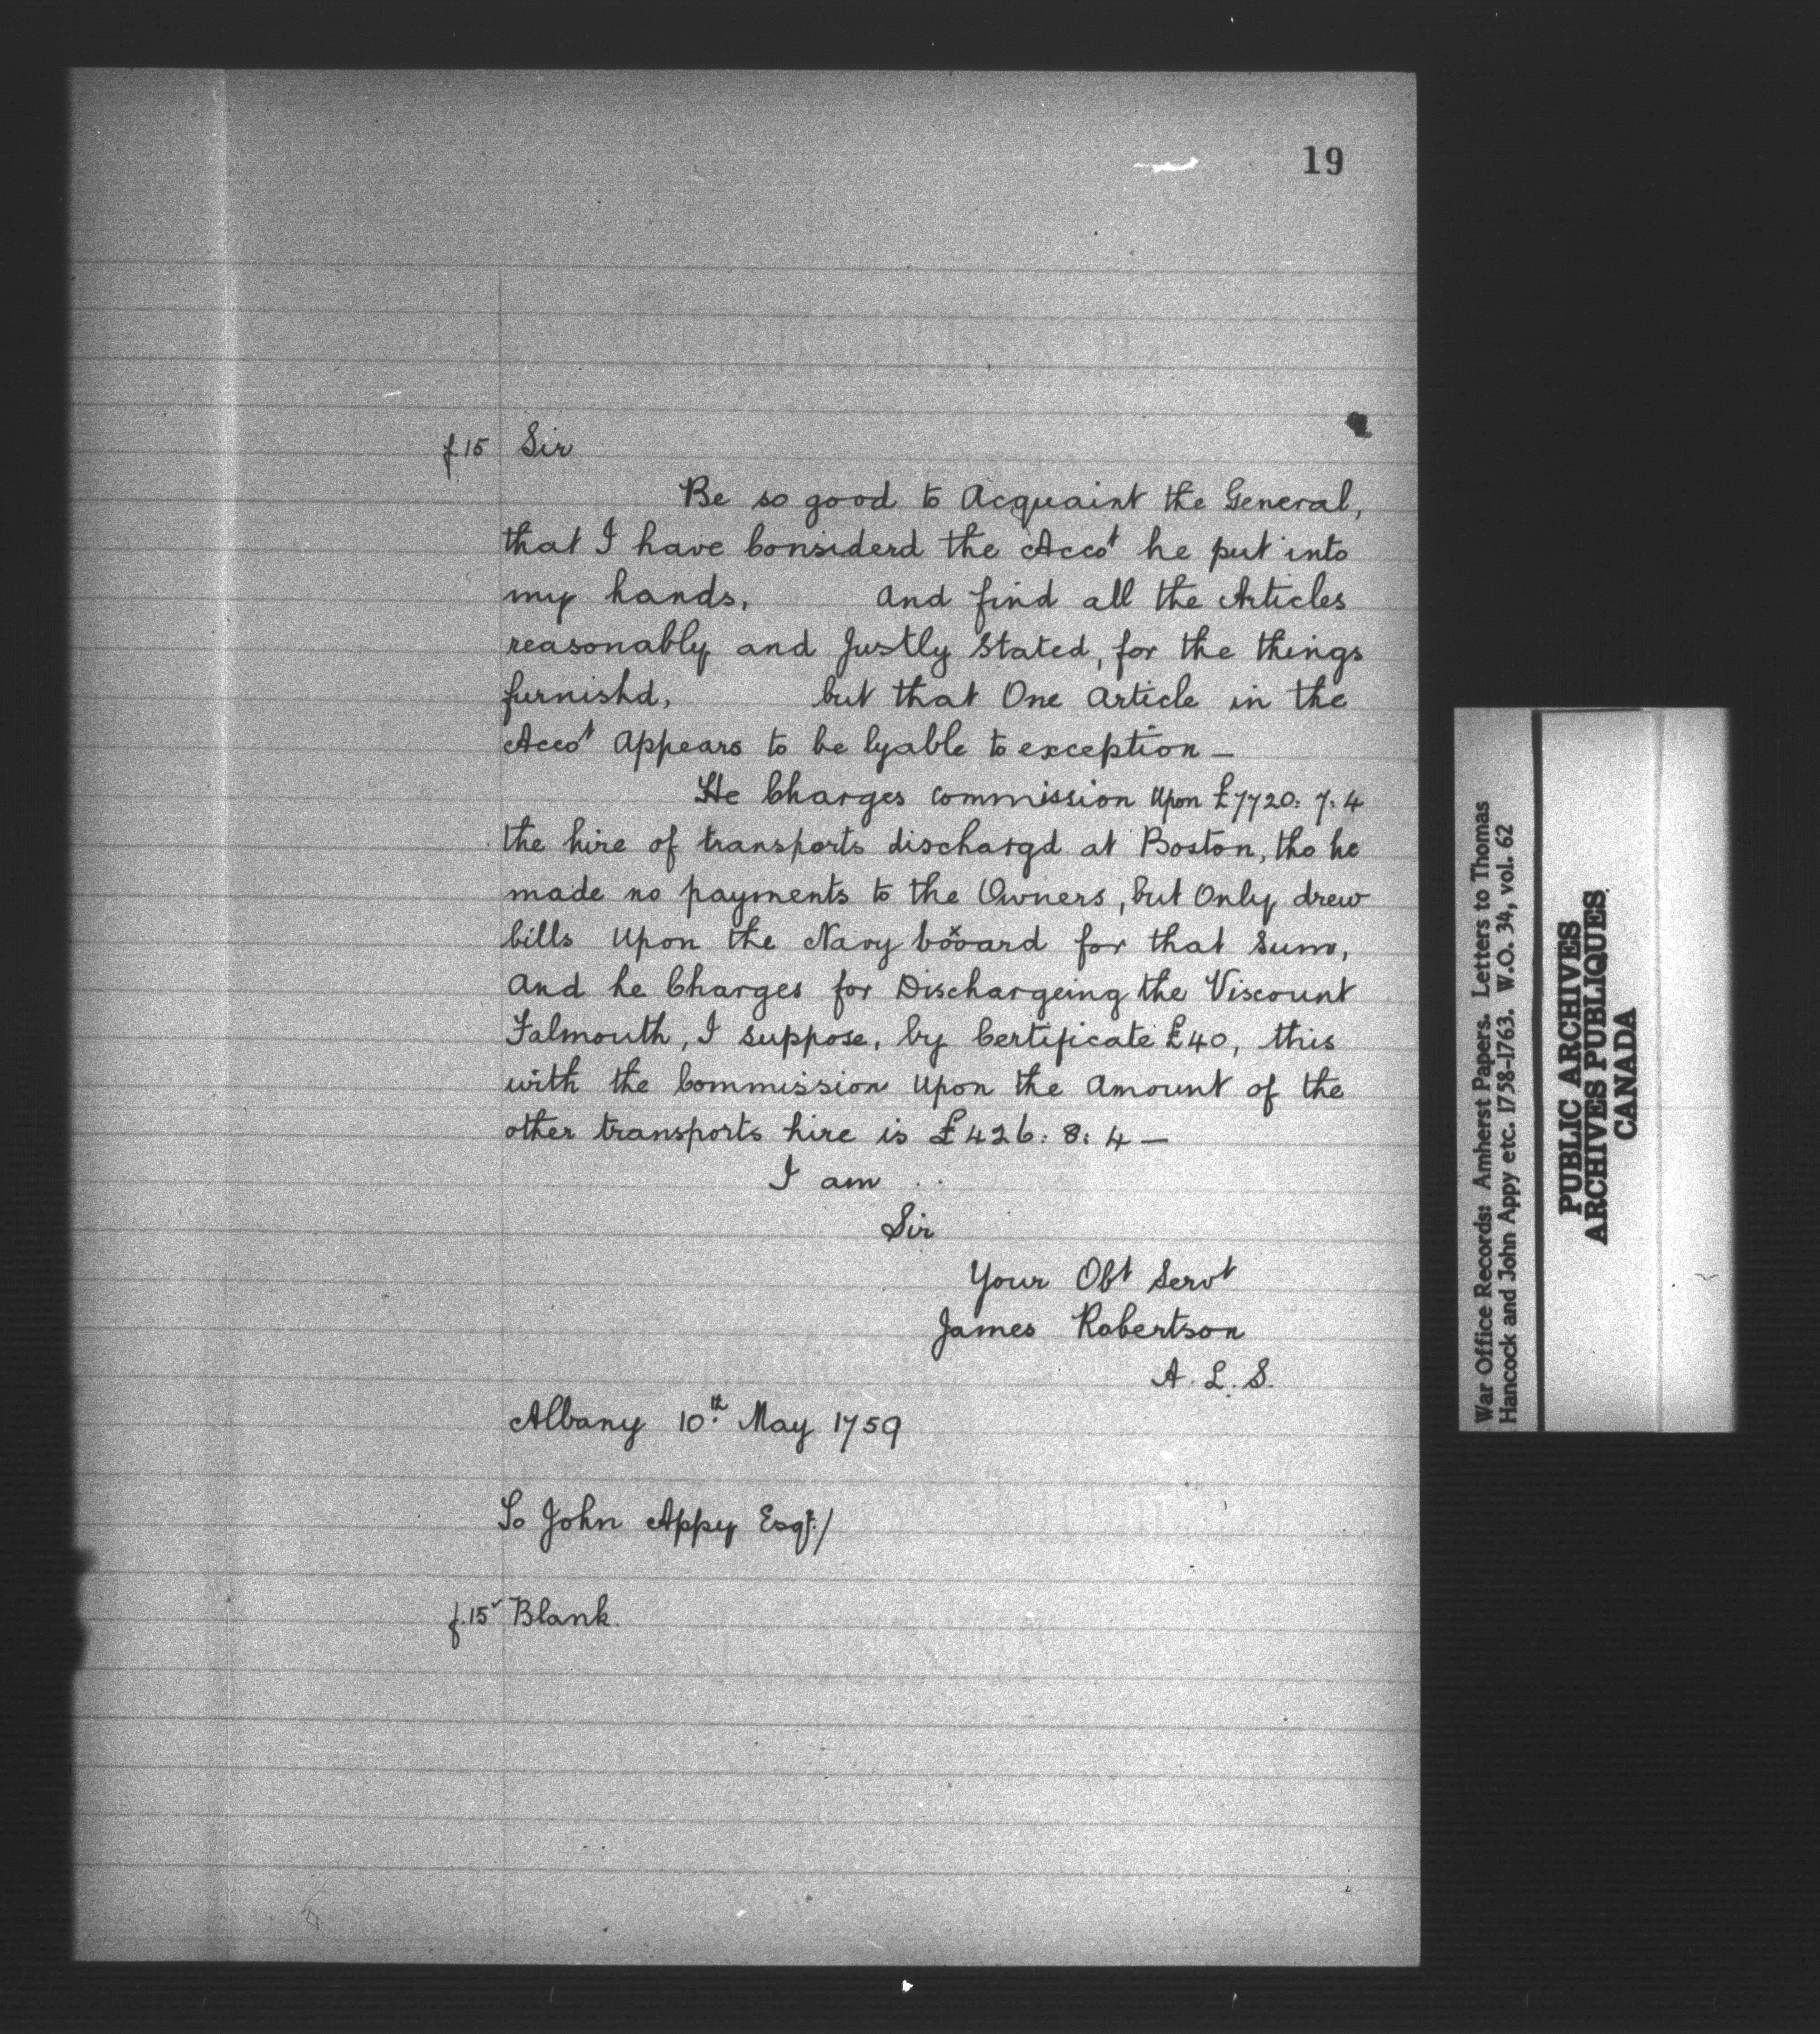 19
f.15 Sir
Be so good to Acquaint the General,
that I have Considerd the Accot he put into
my hands, And find all the Articles
reasonably and Justly Stated, for the things
furnishd, but that One Article in the
Accot Appears to be lyable to exception —
He Charges Commission Upon £7720: 7: 4
the hire of transports dischargd at Boston, tho he
made no payments to the Owners, but Only drew
bills Upon the Navy booard for that Sum,
And he Charges for Dischargeing the Viscount
Falmouth, I suppose, by Certificate £40, this
with the Commission Upon the Amount of the
other transports hire is £426: 8: 4 —
I am
Sir
Your Obt Servt
James Robertson
A. L. S.
Albany 10th May 1759
To John Appy Esqr./
f.15v Blank.
War Office Records: Amherst Papers. Letters to Thomas
Hancock and John Appy etc. 1758-1763. W.O. 34, vol. 62
PUBLIC ARCHIVES
ARCHIVES PUBLIQUES
CANADA